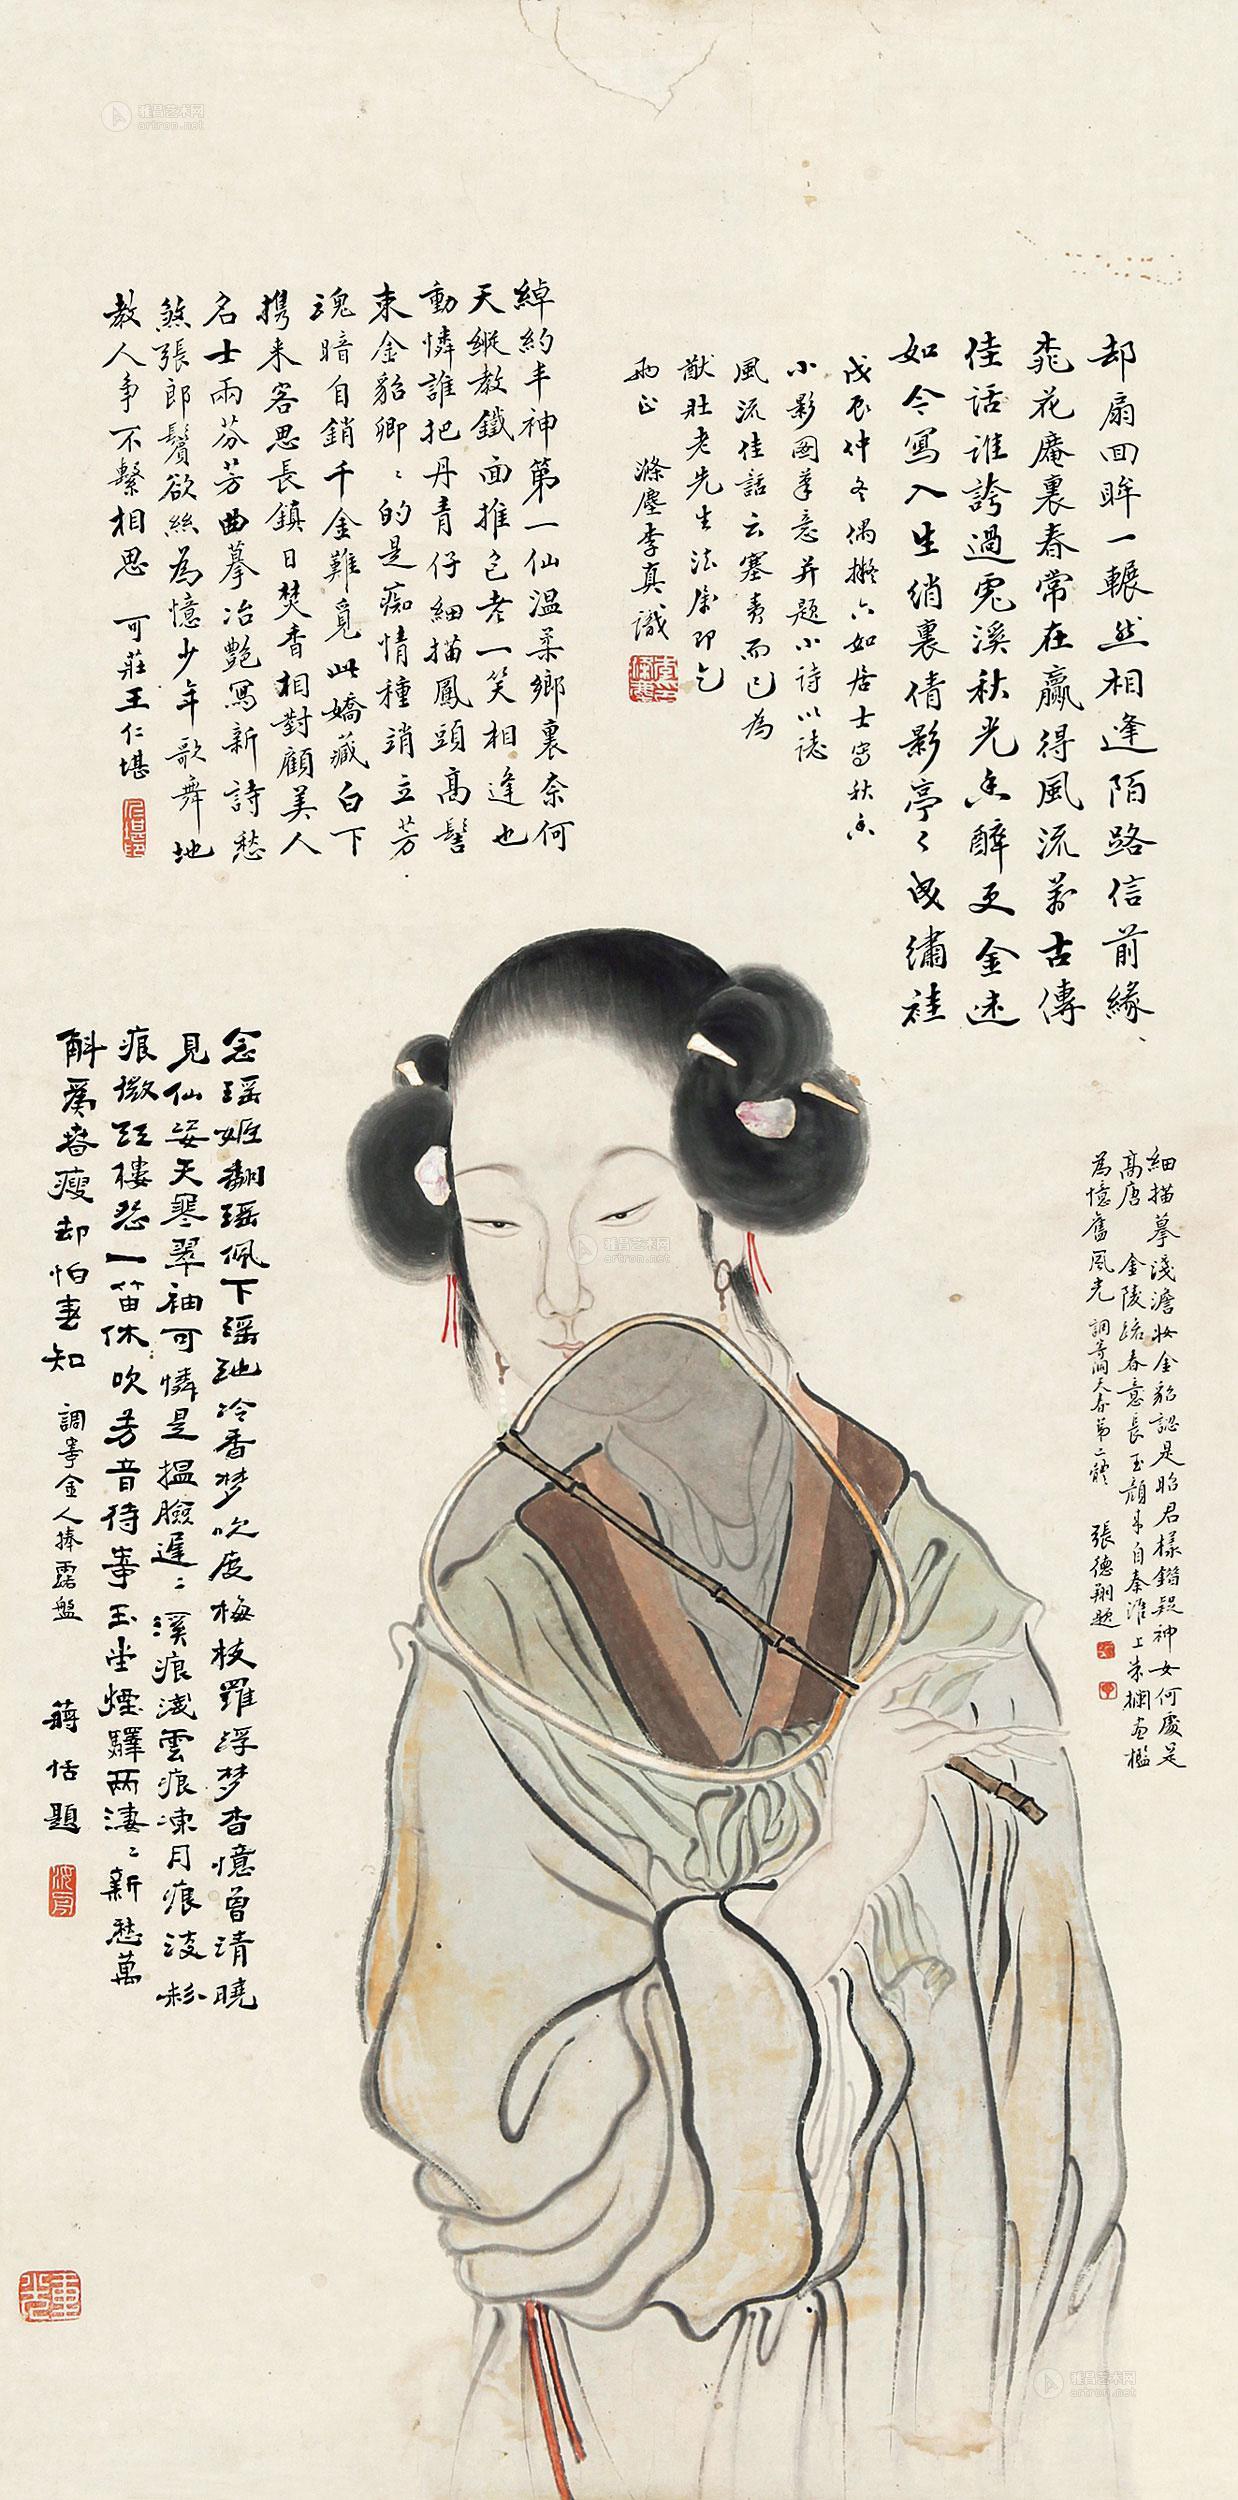 却扇回眸一輾然相逢陌路信前緣
桃花庵裏春常在贏得風流萬古傳
佳話誰誇過虎溪秋光香醉更金迷
如今寫入生綃裏倩影亭々曳繡袿
戊辰仲冬偶擬六如居士寫秋香
小影圖筆意并題小詩以誌
風流佳話云塞責而已為
猷壯老先生法鑒即乞
兩正 滌塵李真識
綽約丰神第一仙溫柔鄉裏奈何
天縱教鐵面推包老一笑相逢也
動憐誰把丹青仔細描鳳頭高髻
束金貂卿々的是痴情種消立芳
魂暗自銷千金難覓此嬌藏白下
携来客思長鎮日焚香相對顧美人
名士兩芬芳曲摹冶艷寫新詩愁
煞張郎鬢欲絲為憶少年歌舞地
教人争不繫相思 可莊王仁堪
細描摹淺澹妝金貂認是昭君樣錯疑神女何處是
高唐 金陵路春意長玉顏来自秦淮上朱欄畫檻
為憶舊風光 調寄洞天春第二體 張德翔題
念瑶姬翻瑶佩下瑶池冷香夢吹度梅枝羅浮夢杳憶曾清曉
見仙姿天寒翠袖可憐是搵臉遲々溪痕淺雲痕凍月痕淡粉
痕微跂樓怨一笛休吹芳音待寄玉堂煙驛两淒々新愁萬
斛爲春瘦却怕春知 調寄金人捧露盤 蔣恬題
雅昌艺术网
artron.net